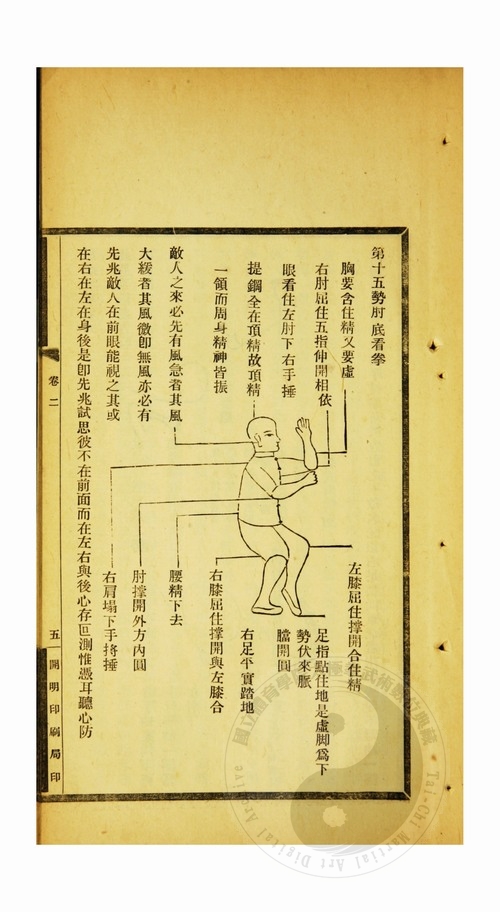 第十五勢肘底看拳
胸要含住精又要虛
右肘屈住五指伸開相依
眼看住左肘下右手捶
提綱全在頂精故頂精
一領而周身精神皆振
敵人之來必先有風急者其風
大緩者其風微卽無風亦必有
先兆敵人在前眼能視之其或
在右在左在身後是卽先兆試思彼不在前面而在左右與後心存叵測惟憑耳聽心防
左膝屈住撐開合住精
足指點住地是虛脚爲下
勢伏來脈
膽開圓
右足平實踏地
右膝屈住撐開與左膝合
腰精下去
肘撐開外方內圓
右肩塌下手將捶
卷二
五
開明印刷局印
國立
Tai-Chi Martial Art Digital Archive